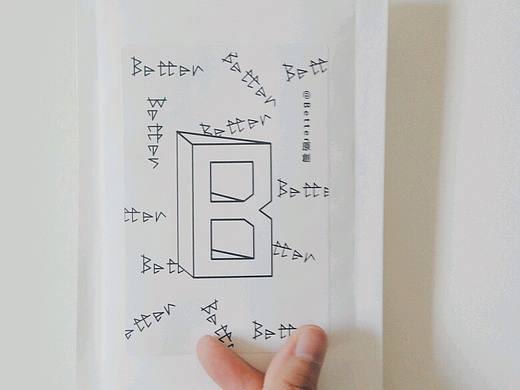 Better
Better
Bett
Better
Better
@Better
B
Bette
tter
tter
Bet
etter
Bett
Bett